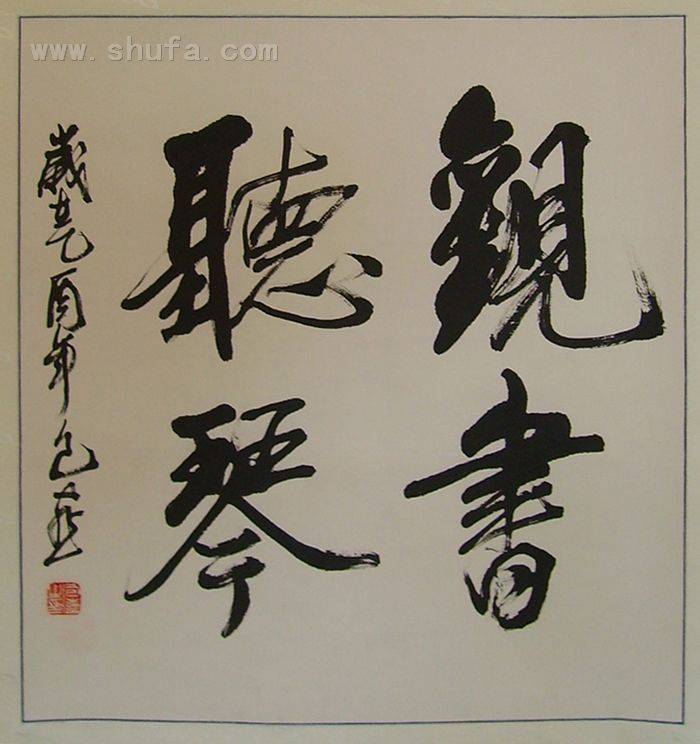 www.shufa.com
觀書
聽琴
歲在乙酉年